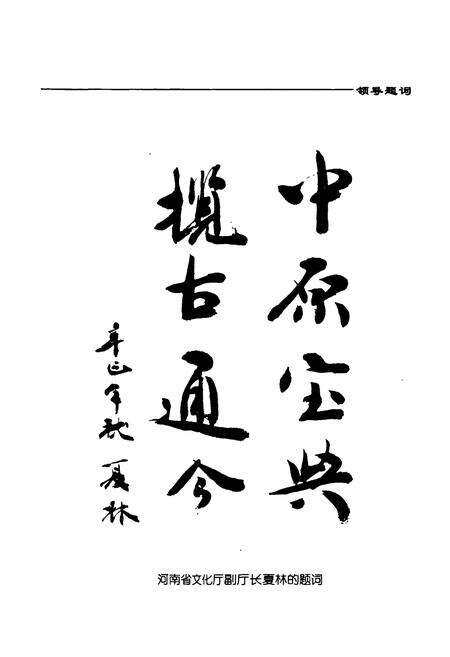 领导题词
中原宝典
揽古通今
辛巳年秋 夏林
河南省文化厅副厅长夏林的题词